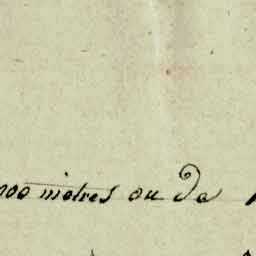 000 mètres ou de